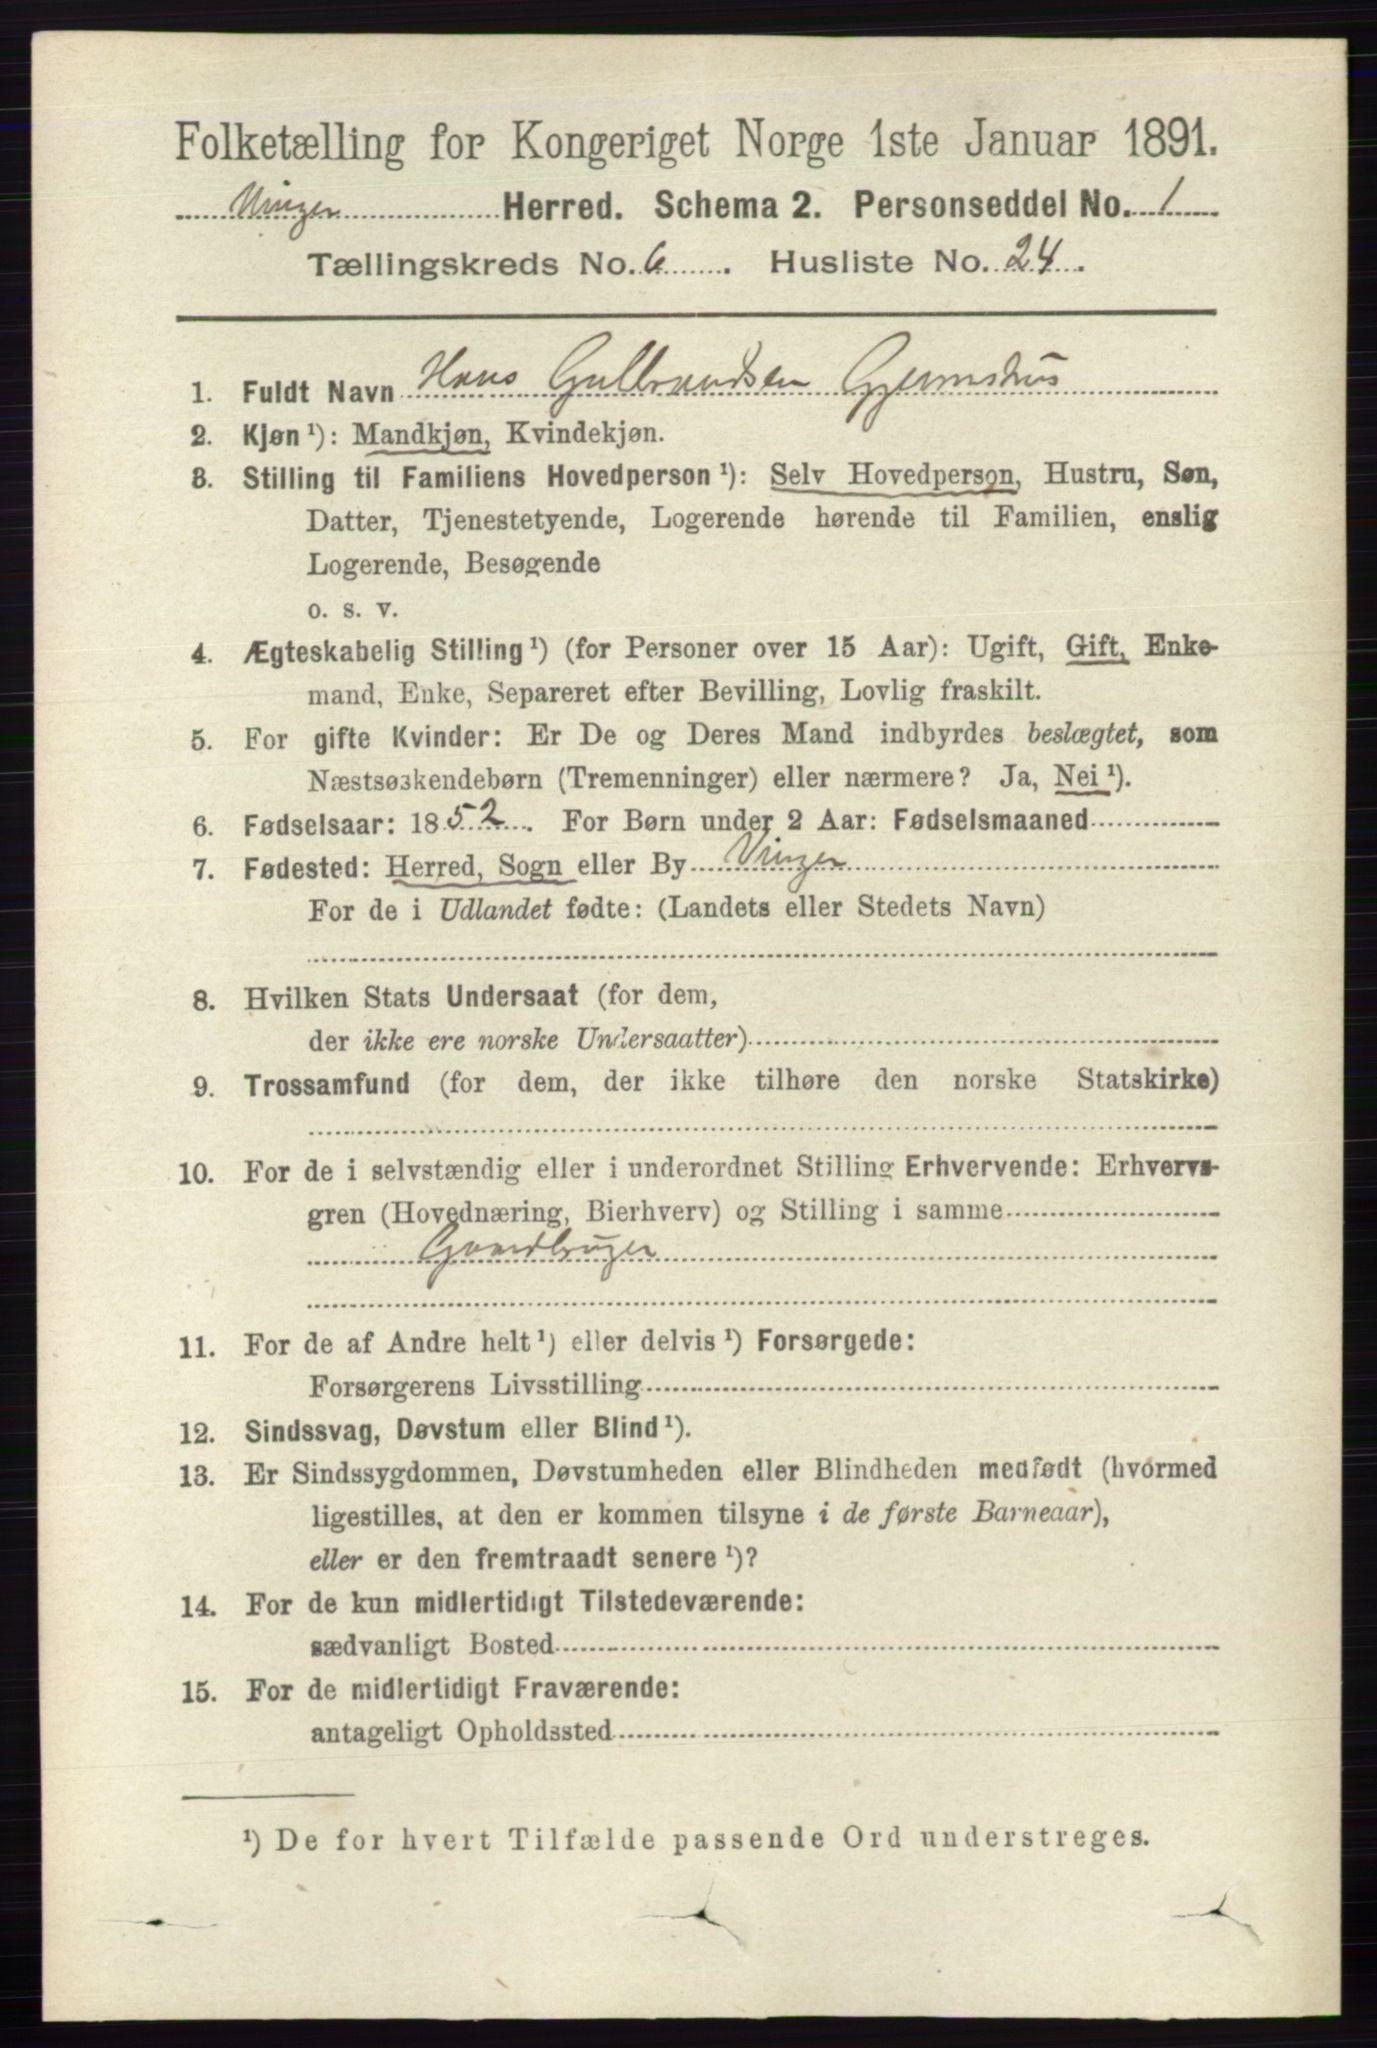 Folketælling for Kongeriget Norge 1ste Januar 1891.
Vinger Herred. Schema 2. Personseddel No. 1
Tællingskreds No. 6. Husliste No. 24.
1. Fuldt Navn Hans Gulbrandsen Gjermshus
2. Kjøn ¹): Mandkjøn, Kvindekjøn.
3. Stilling til Familiens Hovedperson ¹): Selv Hovedperson, Hustru, Søn,
Datter, Tjenestetyende, Logerende hørende til Familien, enslig
Logerende, Besøgende
o. s. v.
4. Ægteskabelig Stilling ¹) (for Personer over 15 Aar): Ugift, Gift, Enke-
mand, Enke, Separeret efter Bevilling, Lovlig fraskilt.
5. For gifte Kvinder: Er De og Deres Mand indbyrdes beslægtet, som
Næstsøskendebørn (Tremenninger) eller nærmere? Ja, Nei ¹).
6. Fødselsaar: 1852. For Børn under 2 Aar: Fødselsmaaned
7. Fødested: Herred, Sogn eller By Vinger
For de i Udlandet fødte: (Landets eller Stedets Navn)
8. Hvilken Stats Undersaat (for dem,
der ikke ere norske Undersaatter)
9. Trossamfund (for dem, der ikke tilhøre den norske Statskirke)
10. For de i selvstændig eller i underordnet Stilling Erhvervende: Erhvervs-
gren (Hovednæring, Bierhverv) og Stilling i samme
Gaardbruger
11. For de af Andre helt ¹) eller delvis ¹) Forsørgede:
Forsørgerens Livsstilling
12. Sindssvag, Døvstum eller Blind ¹).
13. Er Sindssygdommen, Døvstumheden eller Blindheden medfødt (hvormed
ligestilles, at den er kommen tilsyne i de første Barneaar),
eller er den fremtraadt senere ¹)?
14. For de kun midlertidigt Tilstedeværende:
sædvanligt Bosted
15. For de midlertidigt Fraværende:
antageligt Opholdssted
¹) De for hvert Tilfælde passende Ord understreges.